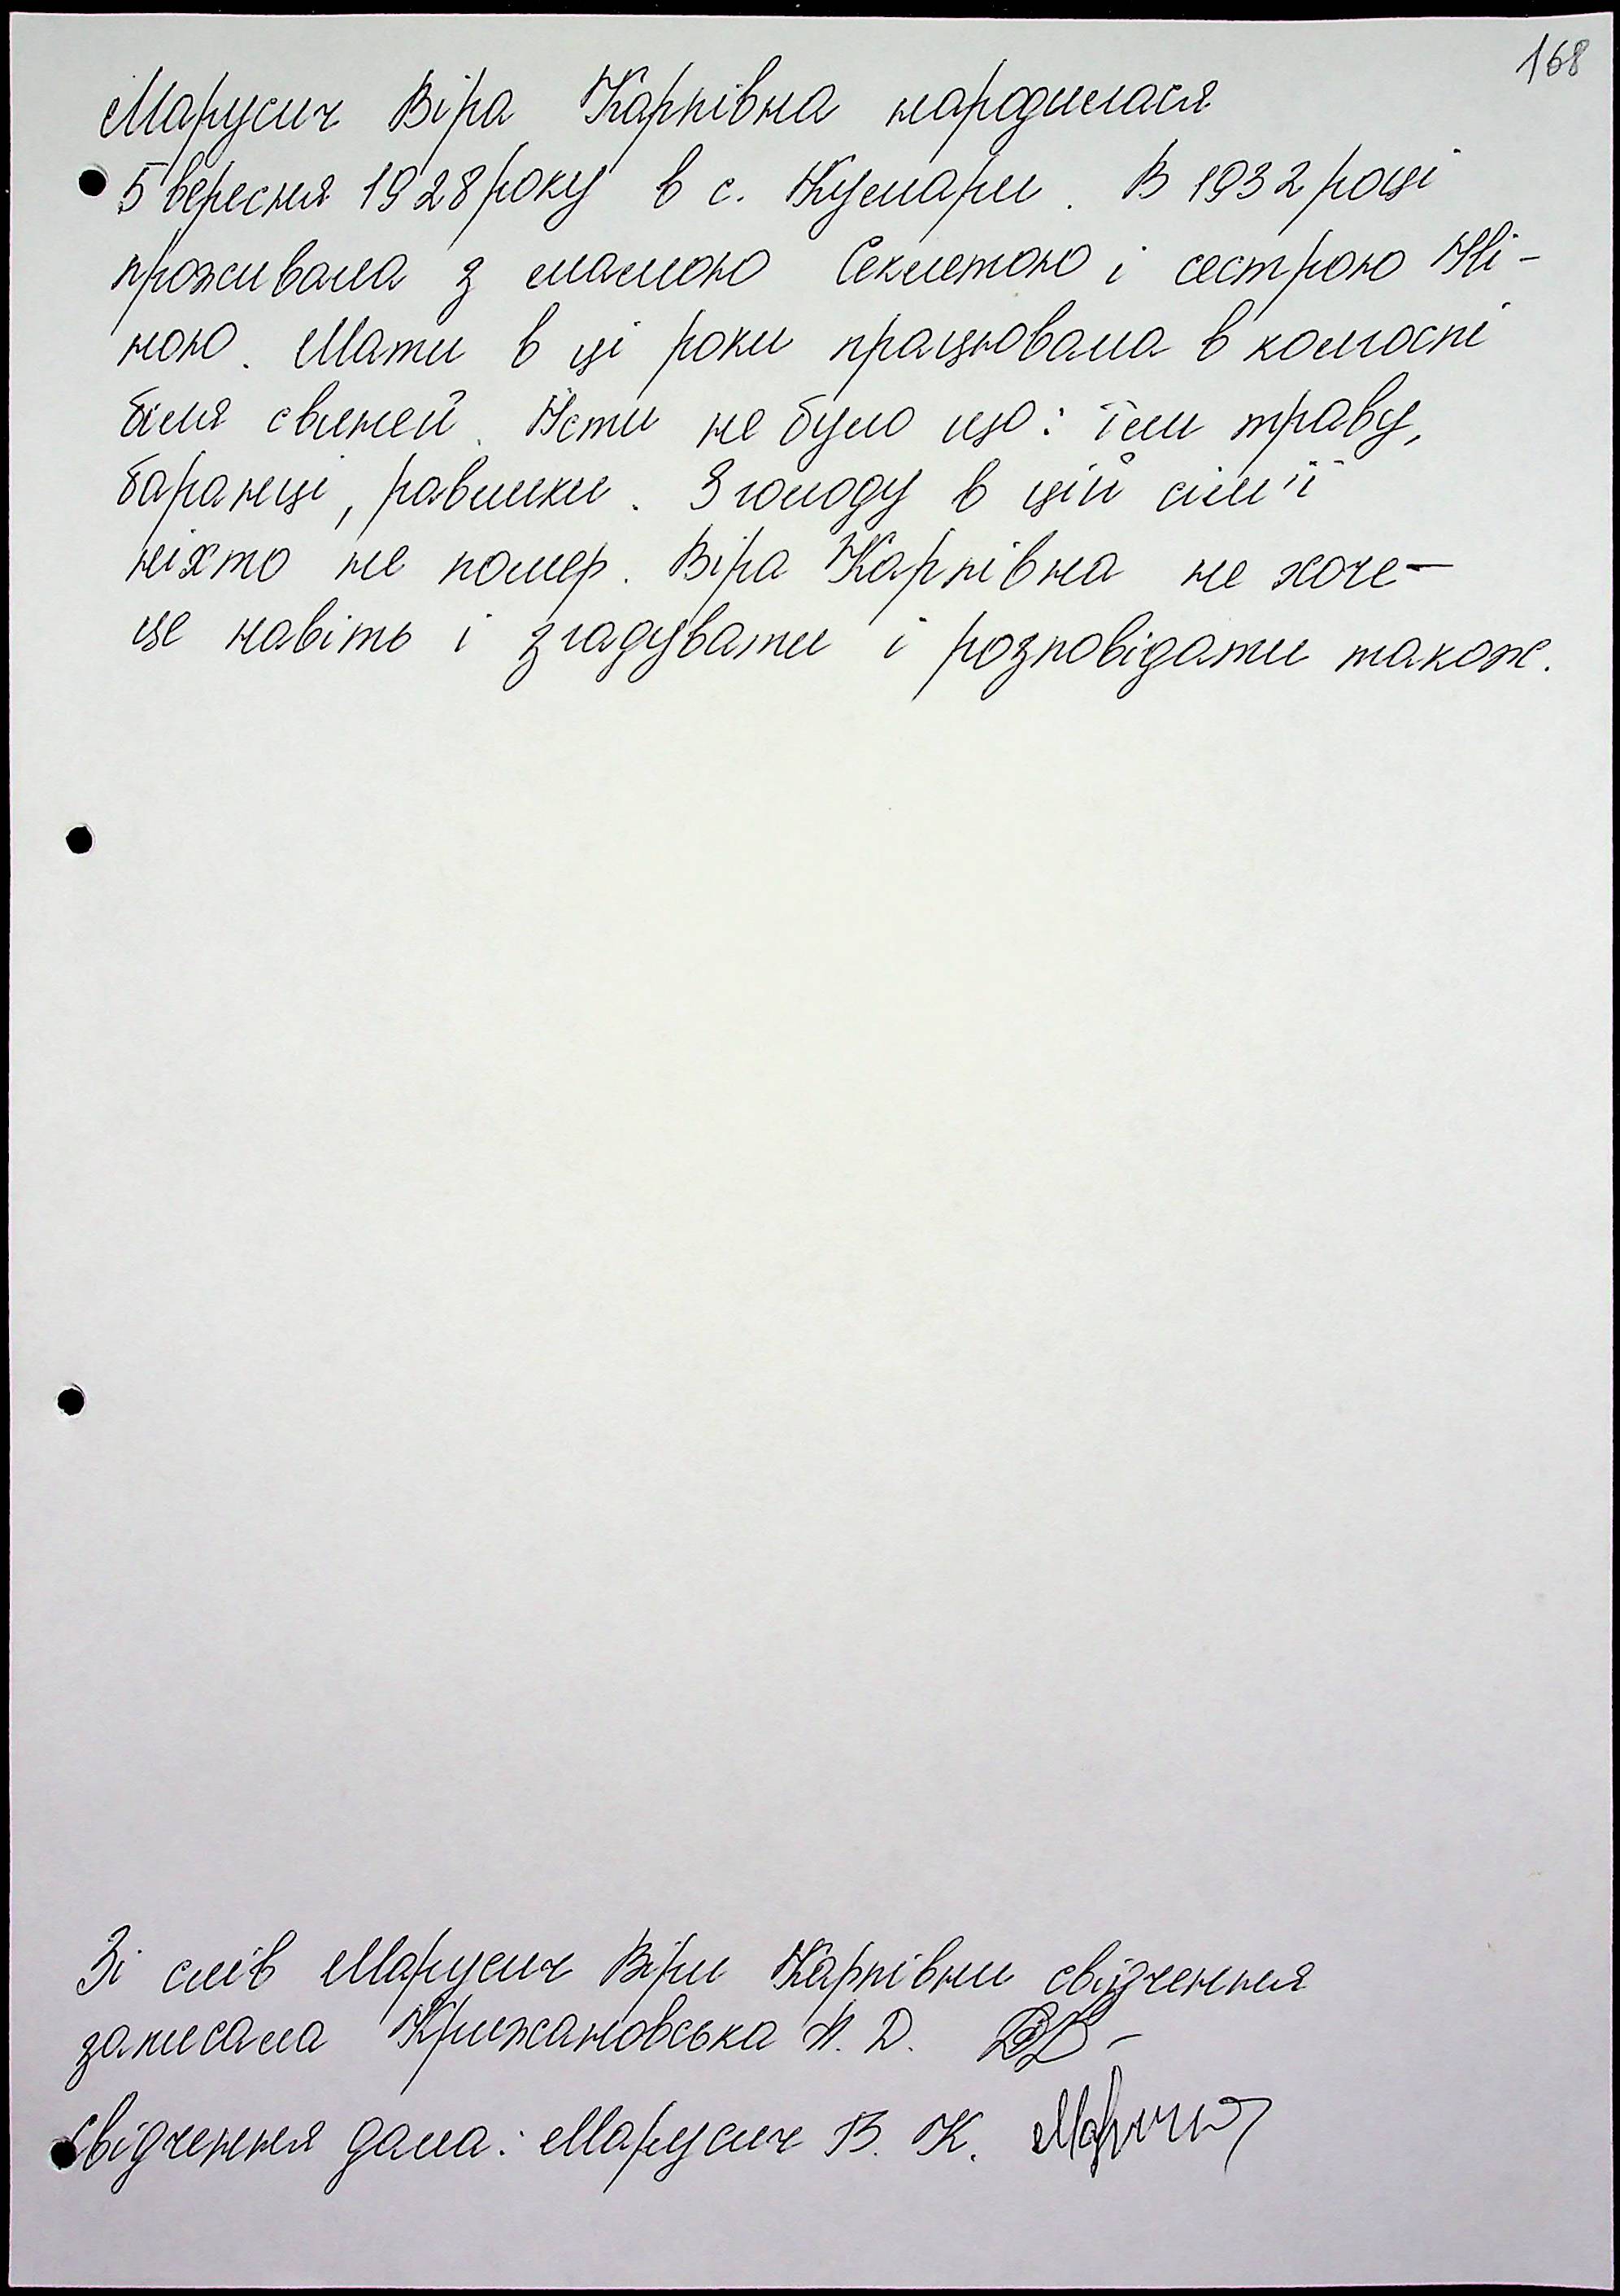 168
Марусич Віра Карпівна народилася
5 вересня 1928 року в с. Кумари. В 1932 році
проживала з мамою Секлетою і сестрою Ні-
ною. Мати в ці роки працювала в колгоспі
біля свиней. Їсти не було що: їли траву,
баранці, равлики. З голоду в цій сім'ї
ніхто не помер. Віра Карпівна не хоче-
це навіть і згадувати і розповідати також.
Зі слів Марусич Віри Карпівни свідчення
записала Крижановська Н. Д.
Свідчення дала: Марусич В. К.